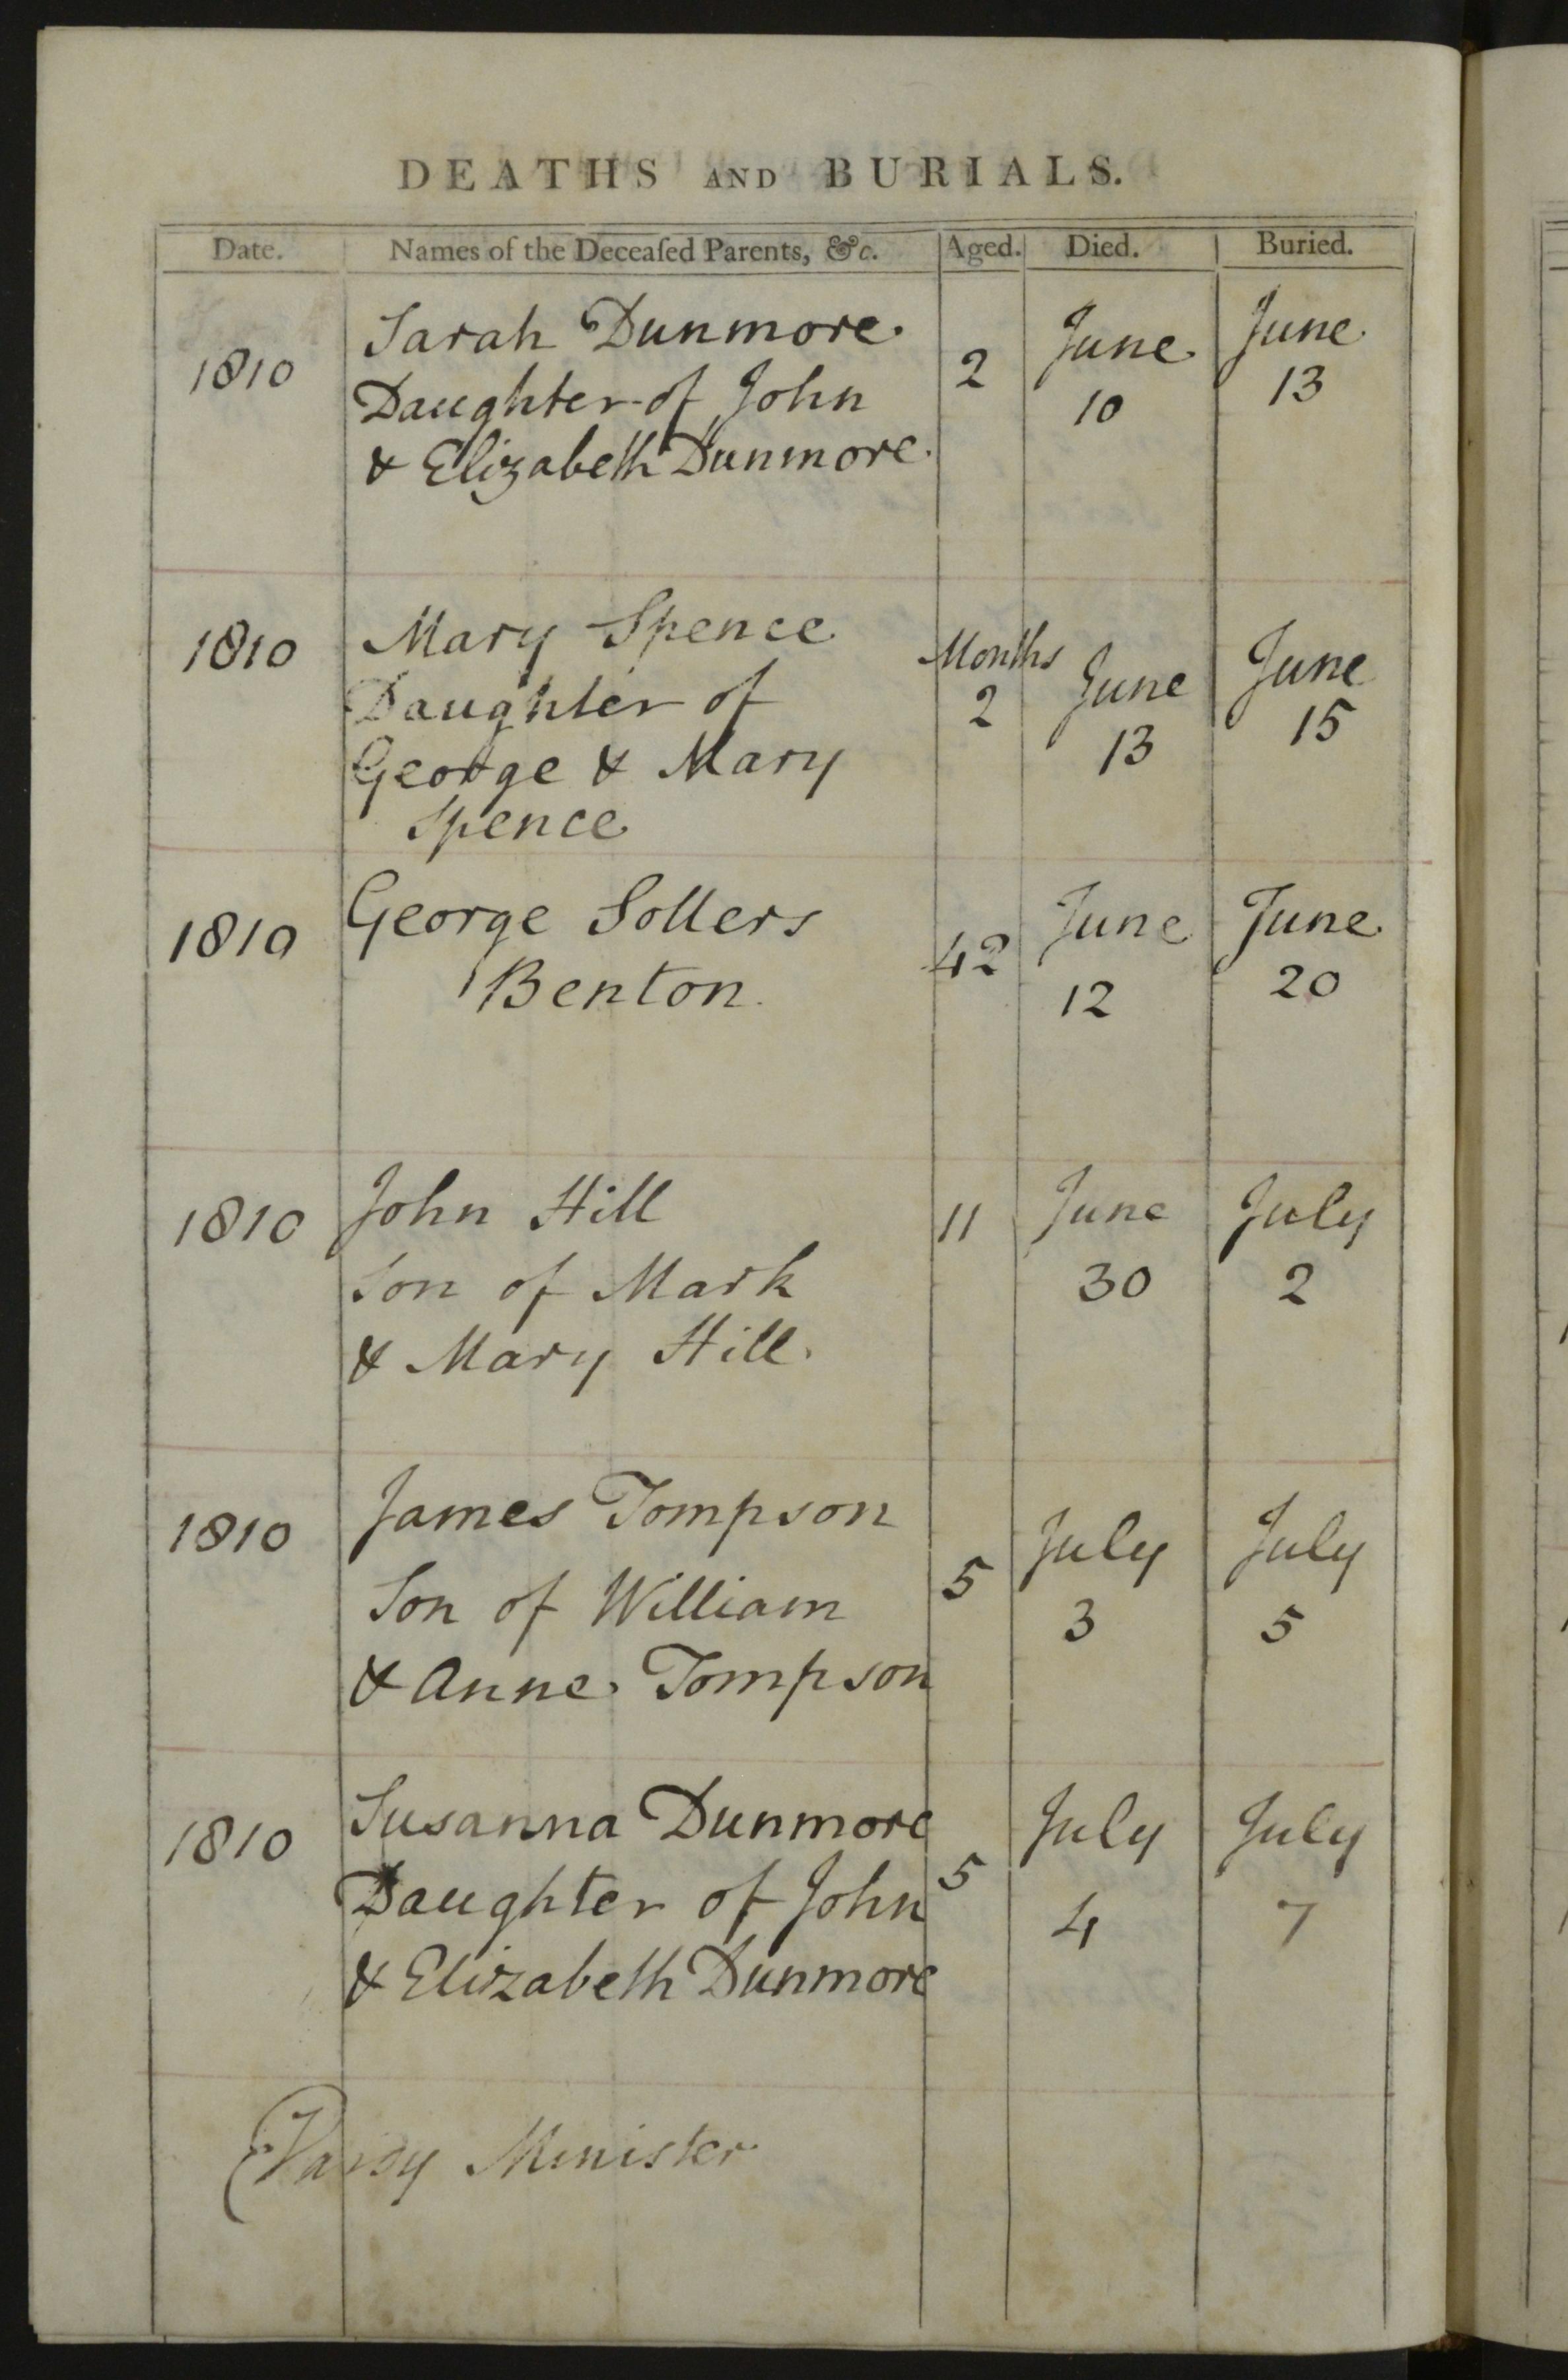 DEATHS AND BURIALS.
Date. Names of the Deceaſed Parents, &c. Aged. Died. Buried.
1810 Sarah Dunmore 2 June 10 June 13
Daughter of John
& Elizabeth Dunmore.
1810 Mary Spence Months 2 June 13 June 15
Daughter of
George & Mary
Spence
1810 George Sollers 42 June 12 June 20
Benton.
1810 John Hill 11 June 30 July 2
Son of Mark
& Mary Hill.
1810 James Tompson 5 July 3 July 5
Son of William
& Anne Tompson
1810 Susanna Dunmore 5 July 4 July 7
Daughter of John
& Elizabeth Dunmore
Minister